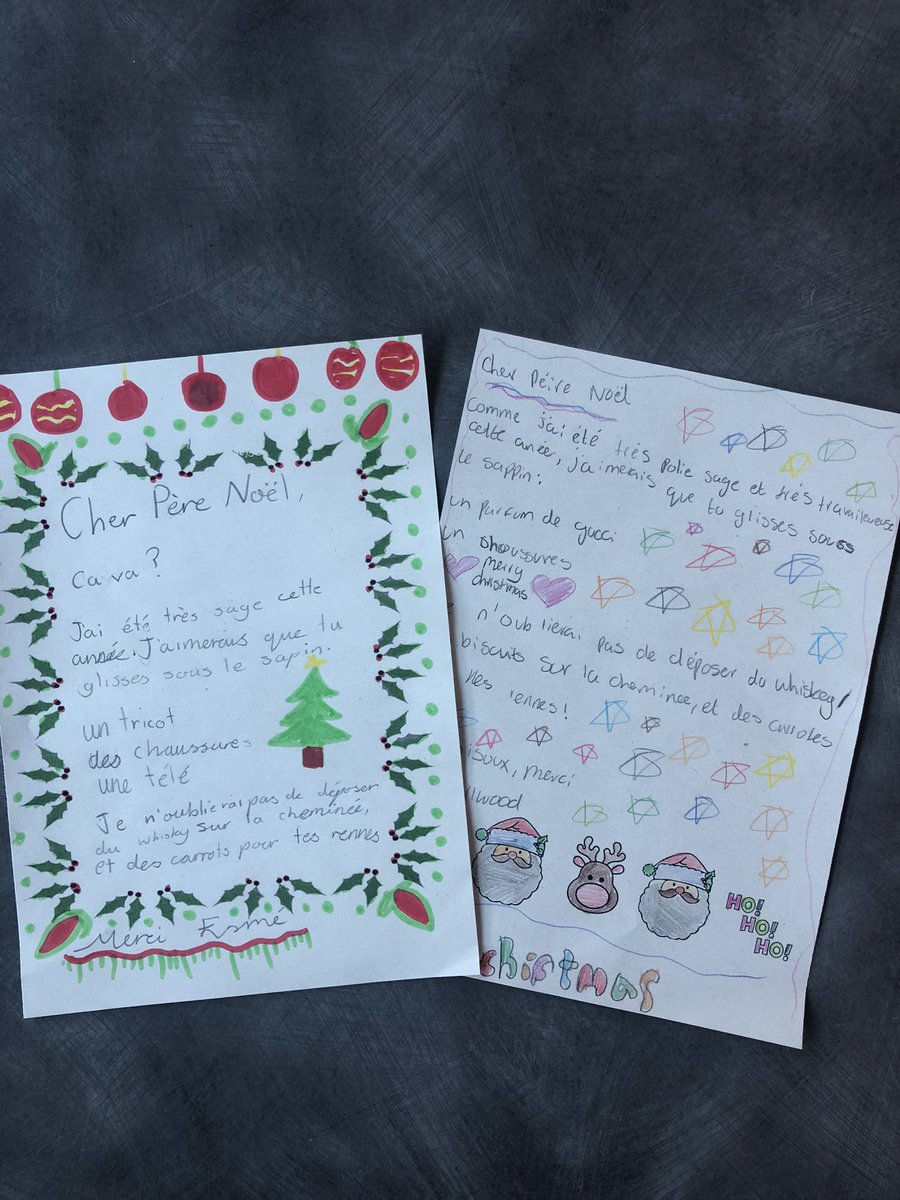 Cher Père Noël,
Ca va?
J'ai été très sage cette
année. J'aimerais que tu
glisses sous le sapin.
un tricot
des chaussures
une télé
Je n'oublierai pas de déposer
du whisky sur la cheminée,
et des carrots pour tes rennes
Merci Esme
Cher Péire Noël
Comme j'ai été très polie sage et trés travaileuse
cette anée, j'aimerais que tu glisses souss
le sappin:
un parfum de gucci
un shoussures
merry
christmas
n'oublierai pas de déposer du whiskey/
biscuits sur la cheminee, et des carotes
rennes!
isoux, merci
llwood
HO!
HO!
HO!
chirtmas